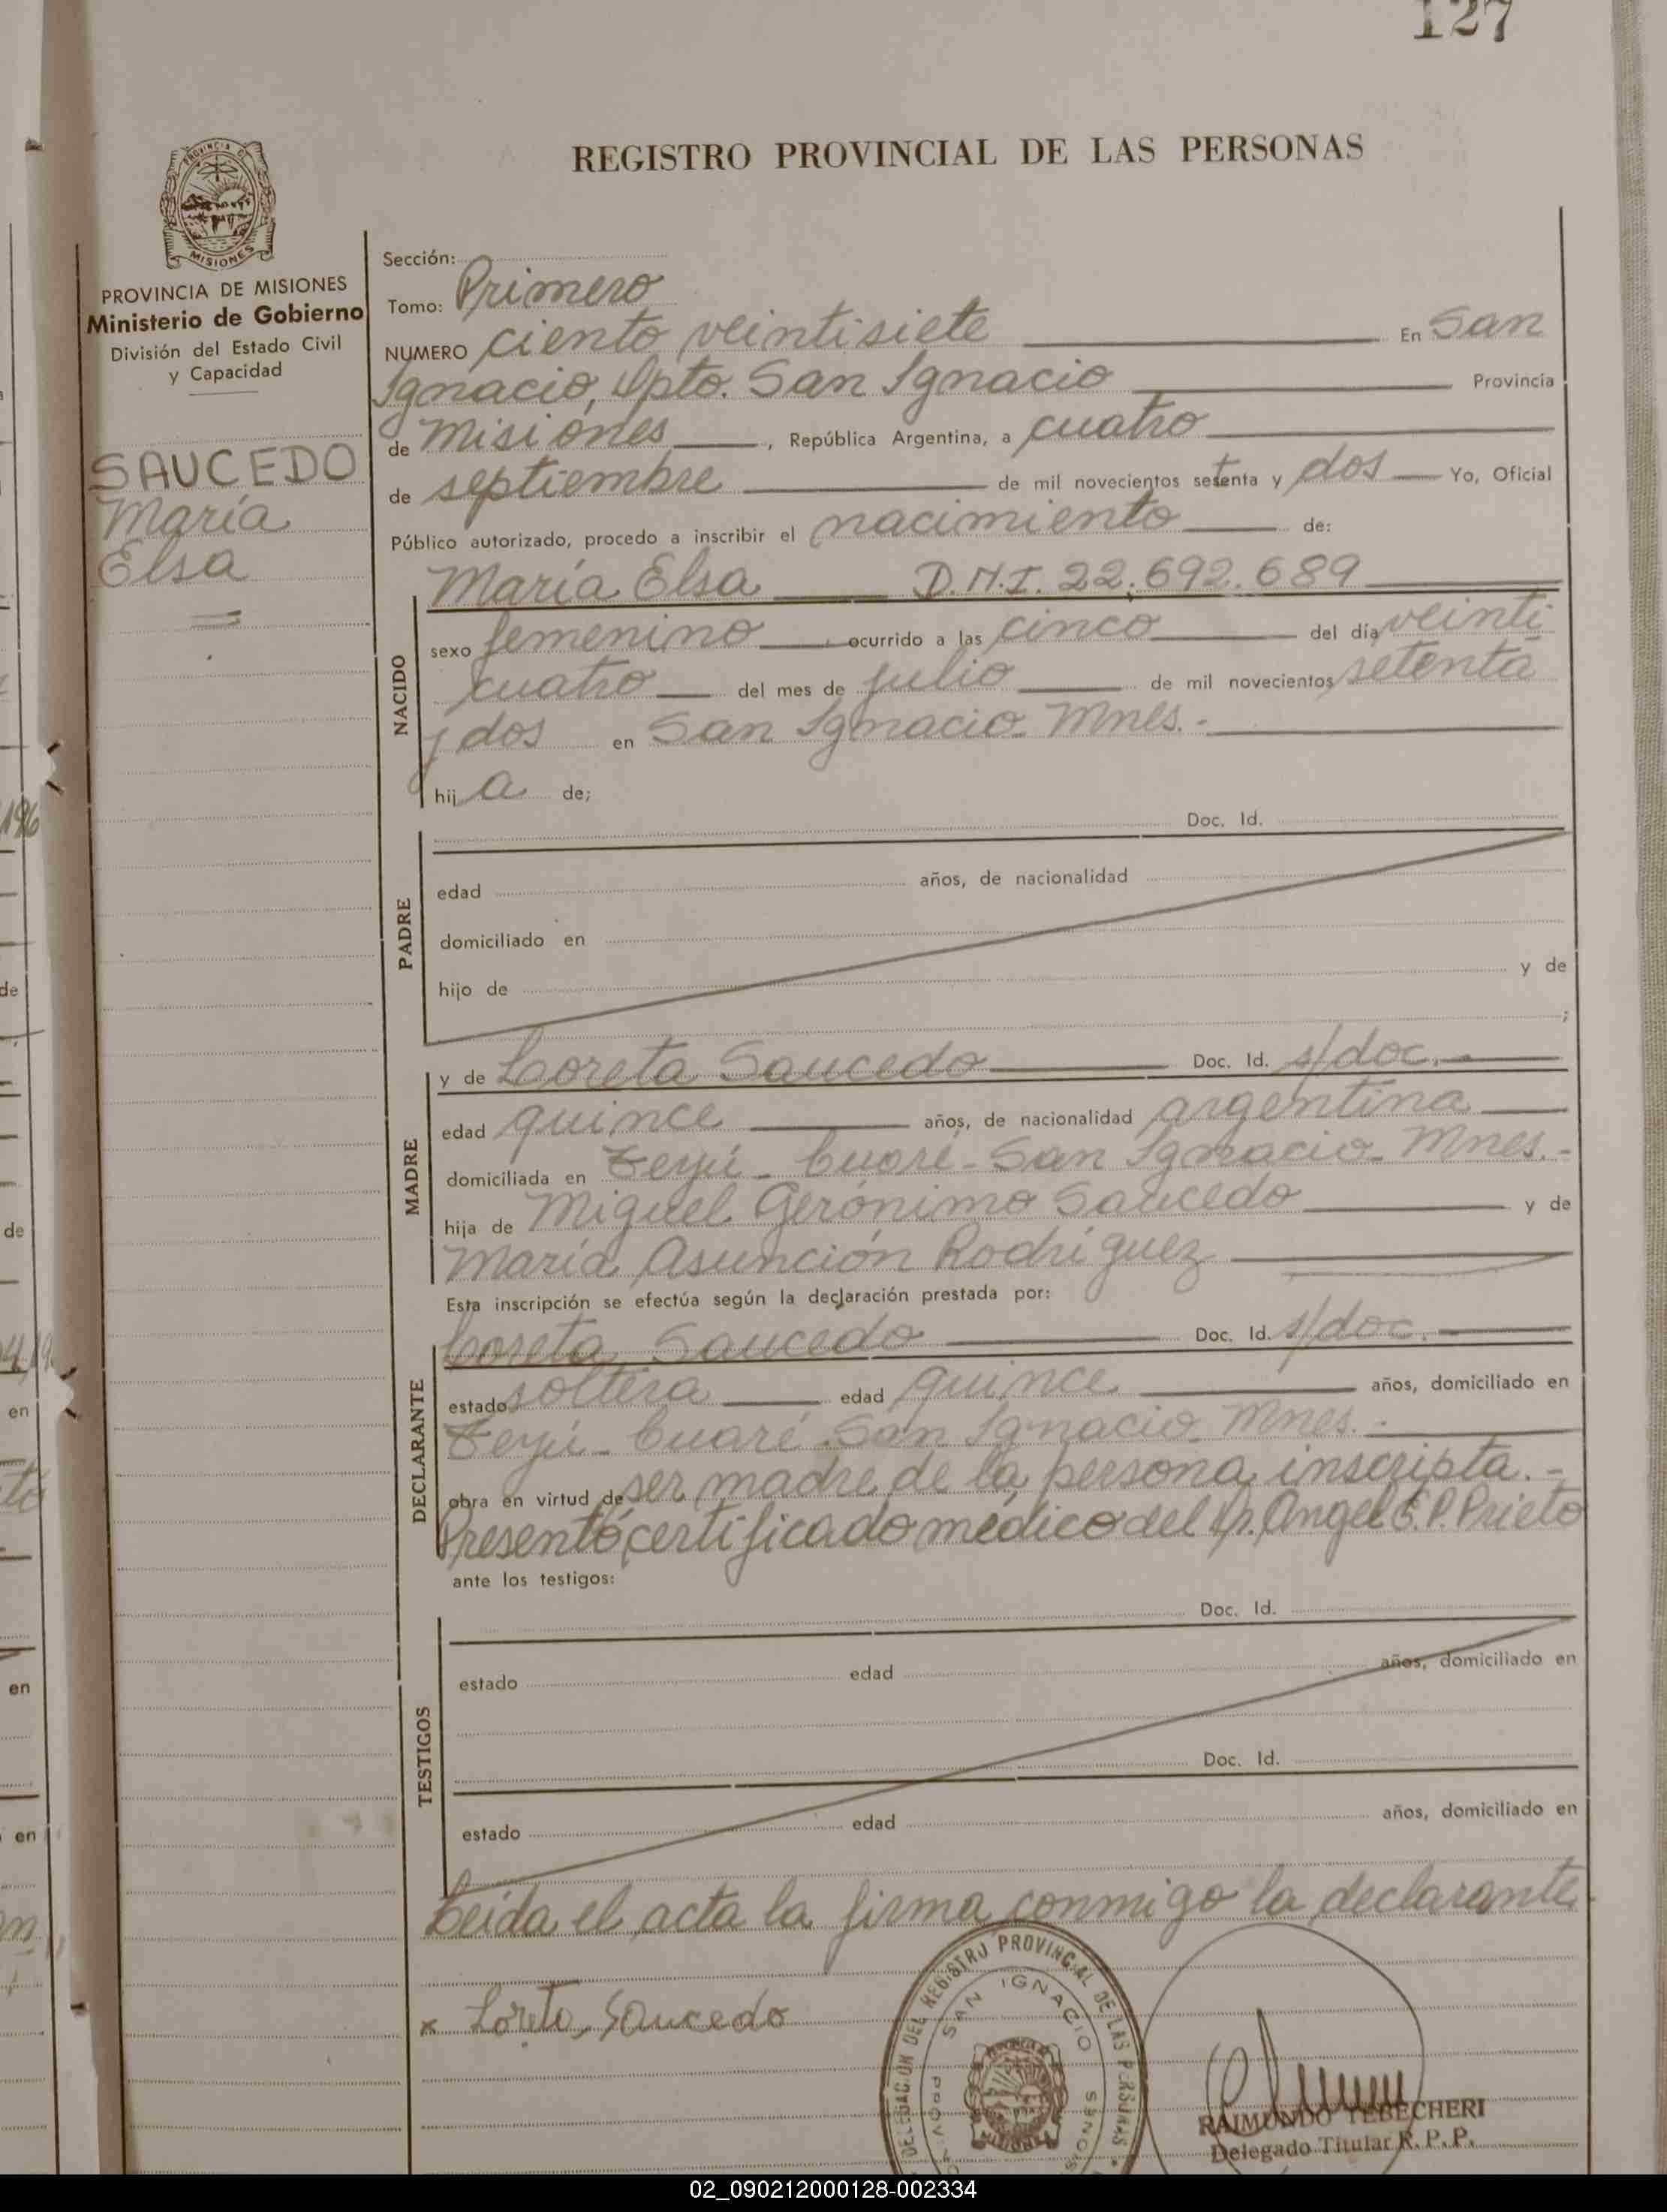 127
REGISTRO PROVINCIAL DE LAS PERSONAS
PROVINCIA DE MISIONES
Ministerio de Gobierno
División del Estado Civil
y Capacidad
SAUCEDO
María
Elsa
Sección:
Tomo: Primero
NUMERO ciento veintisiete En San
Ignacio, Dpto. San Ignacio Provincia
de Misiones, República Argentina, a cuatro
de septiembre de mil novecientos setenta y dos Yo, Oficial
Público autorizado, procedo a inscribir el nacimiento de:
María Elsa D.N.I. 22.692.689
NACIDO
sexo femenino ocurrido a las cinco del día veinti
cuatro del mes de julio de mil novecientos setenta
y dos en San Ignacio - Mnes.-
hij a de;
PADRE
Doc. Id.
edad años, de nacionalidad
domiciliado en
hijo de y de
;
MADRE
y de Loreta Saucedo Doc. Id. s/doc.
edad quince años, de nacionalidad argentina
domiciliada en Teyú - Cuaré - San Ignacio - Mnes.-
hija de Miguel Gerónimo Saucedo y de
María Asunción Rodríguez
Esta inscripción se efectúa según la declaración prestada por:
DECLARANTE
Loreta Saucedo Doc. Id. s/doc.
estado soltera edad quince años, domiciliado en
Teyú - Cuaré - San Ignacio - Mnes.-
obra en virtud de ser madre de la persona inscripta.-
Presentó certificado médico del Dr. Angel E.P. Prieto
ante los testigos:
TESTIGOS
Doc. Id.
estado edad años, domiciliado en
Doc. Id.
estado edad años, domiciliado en
Leída el acta la firma conmigo la declarante.
x Loreto Saucedo
DELEGACION DEL REGISTRO PROVINCIAL DE LAS PERSONAS
SAN IGNACIO
MISIONES
RAIMUNDO TEBECHERI
Delegado Titular R.P.P.
02_090212000128-002334